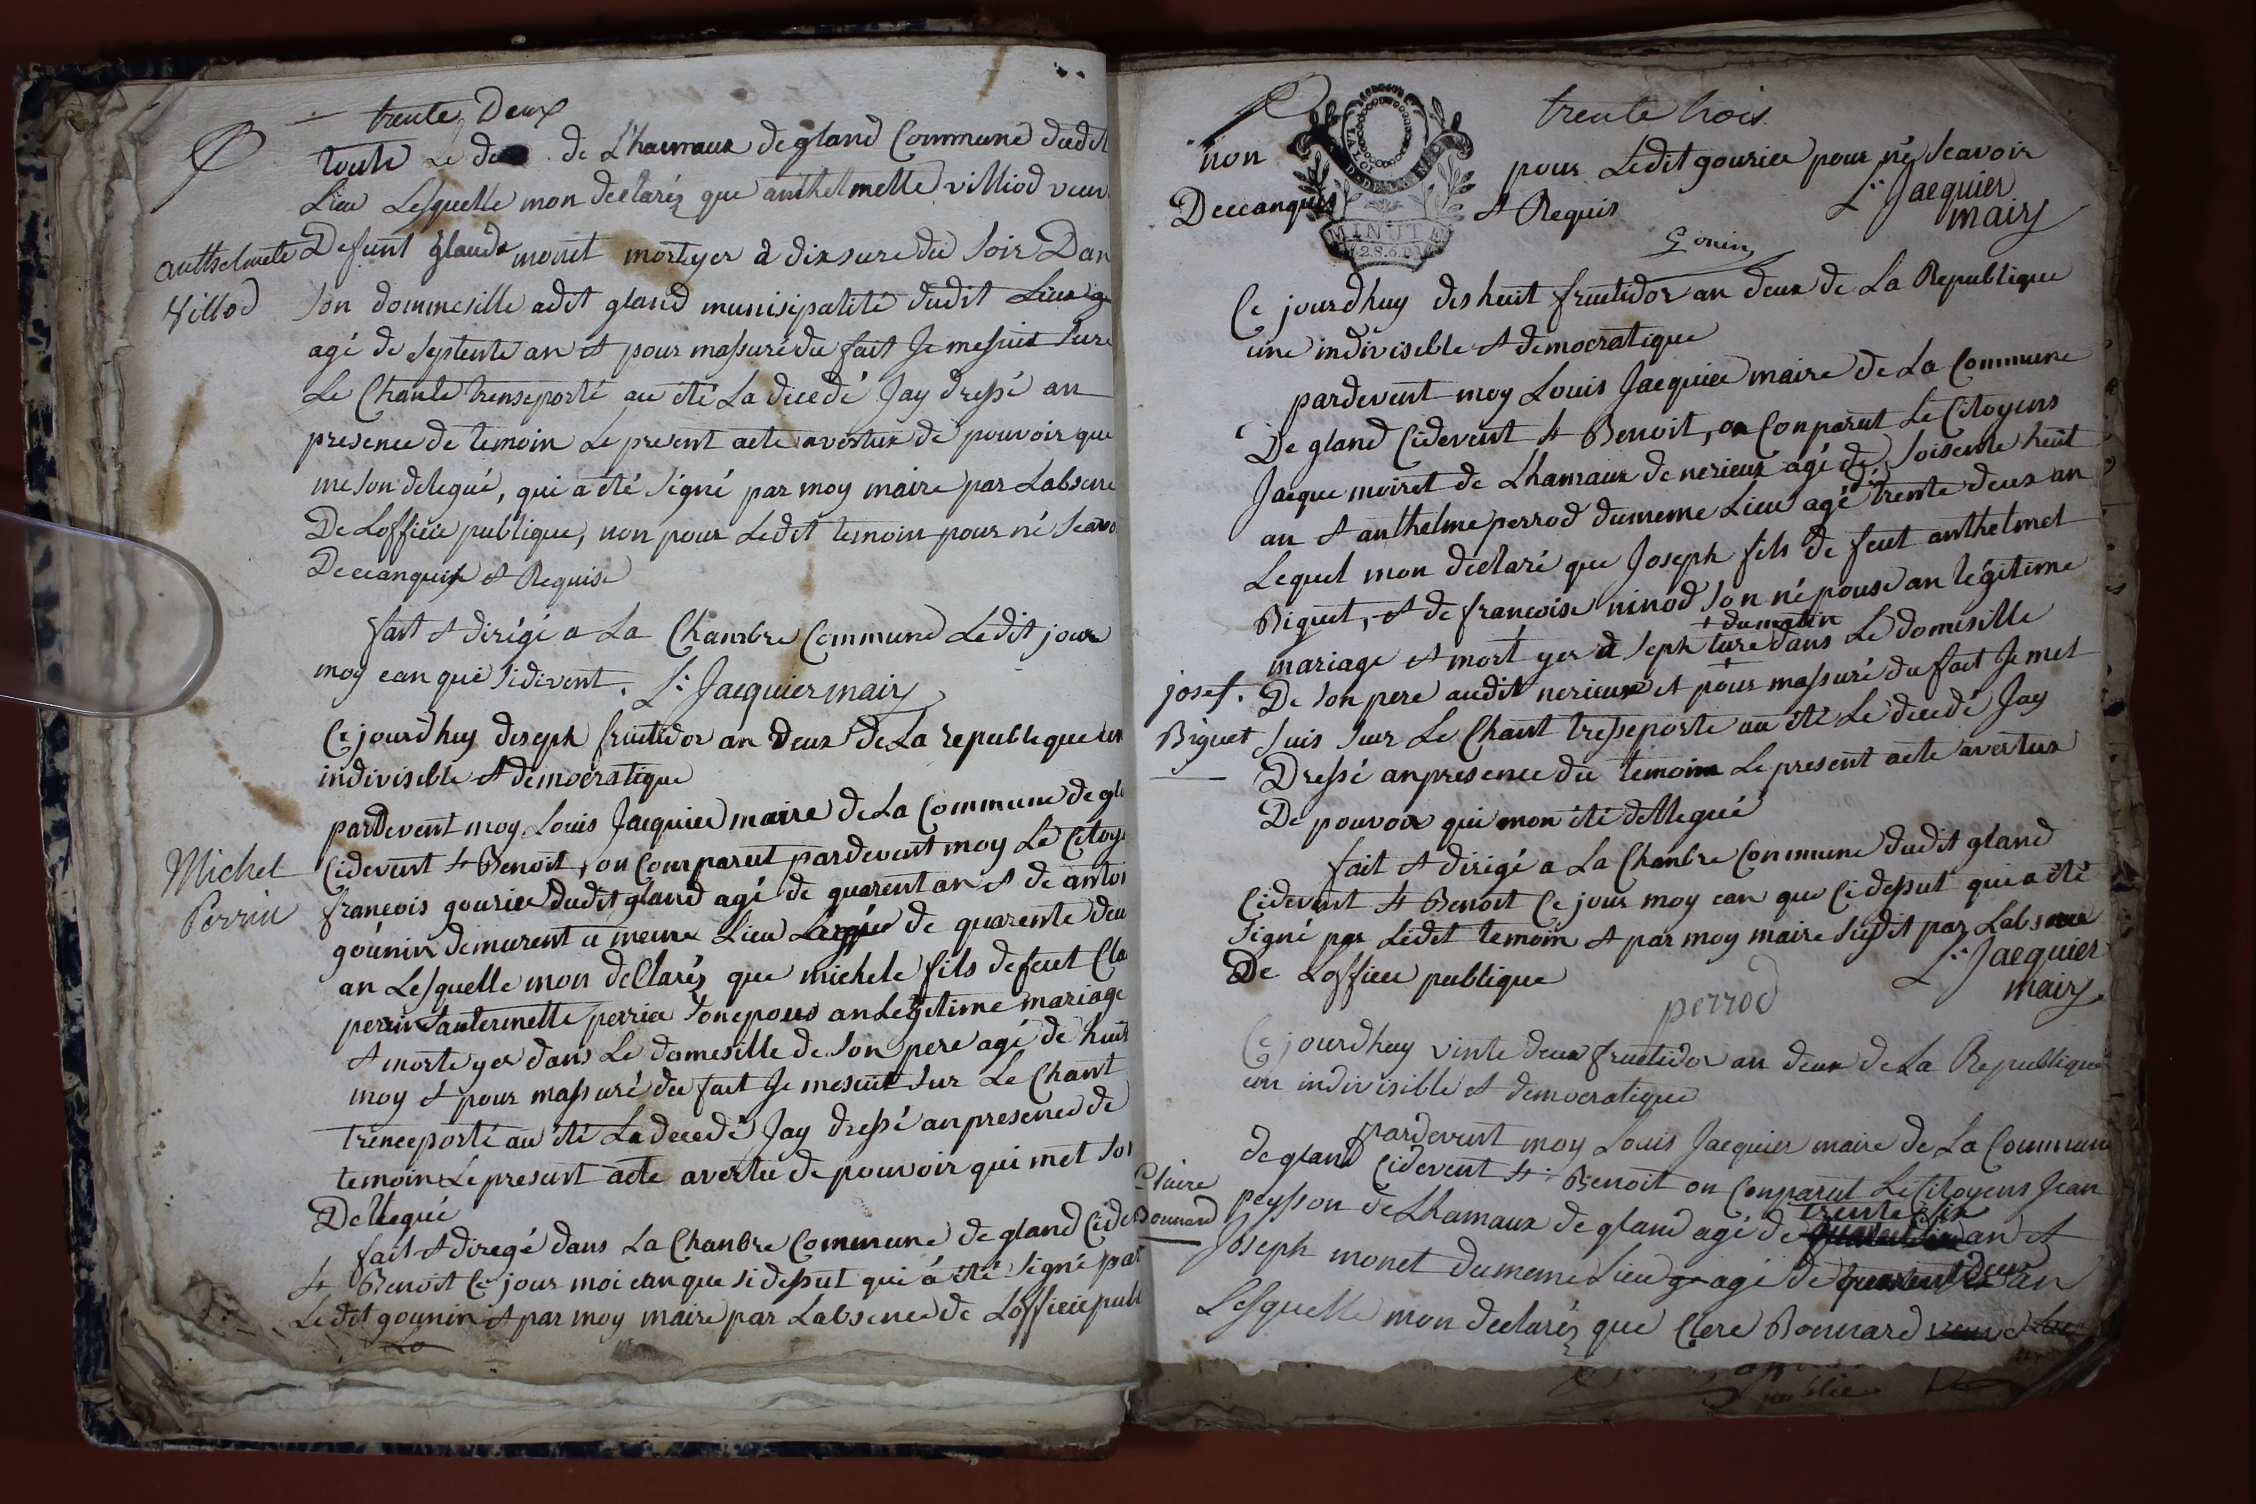 trente Deux
toute Le de de L'haumaux de gland Commune dudit
Lieu Lesquelle mon declaréz que anthelmette villiod veuv
Defunt glaude monet morteyer a dixsure du soir Dan
anthelmete
Villod
son dommesille adit gland munisipalité dudit Lieu
agé de septente an et pour massuré du fait Je mesuit sure
Le Chante trenseporté au été La decedé Jay dressé an
presence de temoin Le present acte avertux de pouvoir que
me son delegué, qui a été signé par moy maire par Labsence
De Lofficié publique, non pour Ledit temoin pour né scavo
Deccanquis et Requise
fait et dirigé a La Chambre Commune Ledit jour
moy can que sidivent. L: Jacquier mairy
Ce jourdhuy deseph fructidor an deux de La republeque un
indiviseble et démocratique
pardevent moy Louis Jacquier maire de La Commune de gla
Cidevent St Benoit, on Comparut pardevent moy Le Citoy
Michel
Perrin
francois gourier dudit gland agé de quarent an et de antoi
gounin demurent u meme Lieu Lagée de quarente deu
an Lesquelle mon declaréz que michele fils defeut Cla
perrin tautermette perrier son epous an Legitime mariage
et morte yer dans Le domesille de son pere agé de huit
moy et pour massuré du fait Je mesuit sur Le Chant
trenceporté au été La decedé Jay dressé an presence de
temoin Le present acte avertu de pouvoir qui met son
Dellegué
fait et diregé dans La Chanbre Commune de gland Cide
St Benoit Ce jour moi can que si dessut qui a été signé par
Ledit gounin et par moy maire par Labsence de Lofficié publ
trente trois
non pour Ledit gourier pour né scavoir
Deccanquis et Requis L: Jacquier
mairy
Gonin
MINUTE
2.S.6.D.
Ce jourdhuy dishuit fructidor an deux de La Republique
une indiviseble et démocratique
pardevent moy Louis Jacquier maire de La Commune
De gland Cidevent St Benoit, on Conparut Le Citoyens
Jacque moiret de Lhamaux de nerieux agé de soisente huit
an et anthelme perrod dumeme Lieu agé de trente deux an
Lequel mon declaré que Joseph fils de feut anthelmet
Biguet, et de francoise ninod son né pouse an légitime
+ du matin
mariage et mort yer a seph ture dans Le domesille
josef.
Biguet
De son pere audit nerieux et pour massuré du fait Je met
suis sur Le Chant tresseporte au été Le decedé Jay
Dressé anpresence du temoin Le present acte avertux
De pouvoir qui mon été dellegué
fait et dirigé a La Chanbre Commune dudit gland
Cidevent St Benoit Ce jour moy can que Ci dessut qui a été
signé par Ledit temoin et par moy maire sudit par Labsence
De Lofficié publique L: Jacquier
mairy
perrod
Ce jourdhuy vinte deux fructidor an deux de La Republique
un indivisible et democratique
pardevent moy Louis Jacquier maire de La Commune
de gland Cidevent St Benoit on Conparut Le Citoyens Jean
Claire
Bonnard
trente six
peysson de Lhamaux de gland agé de an et
Joseph monet dumeme Lieu agé de quarent deux an
Lesquelle mon declaréz que Clere Bonnard